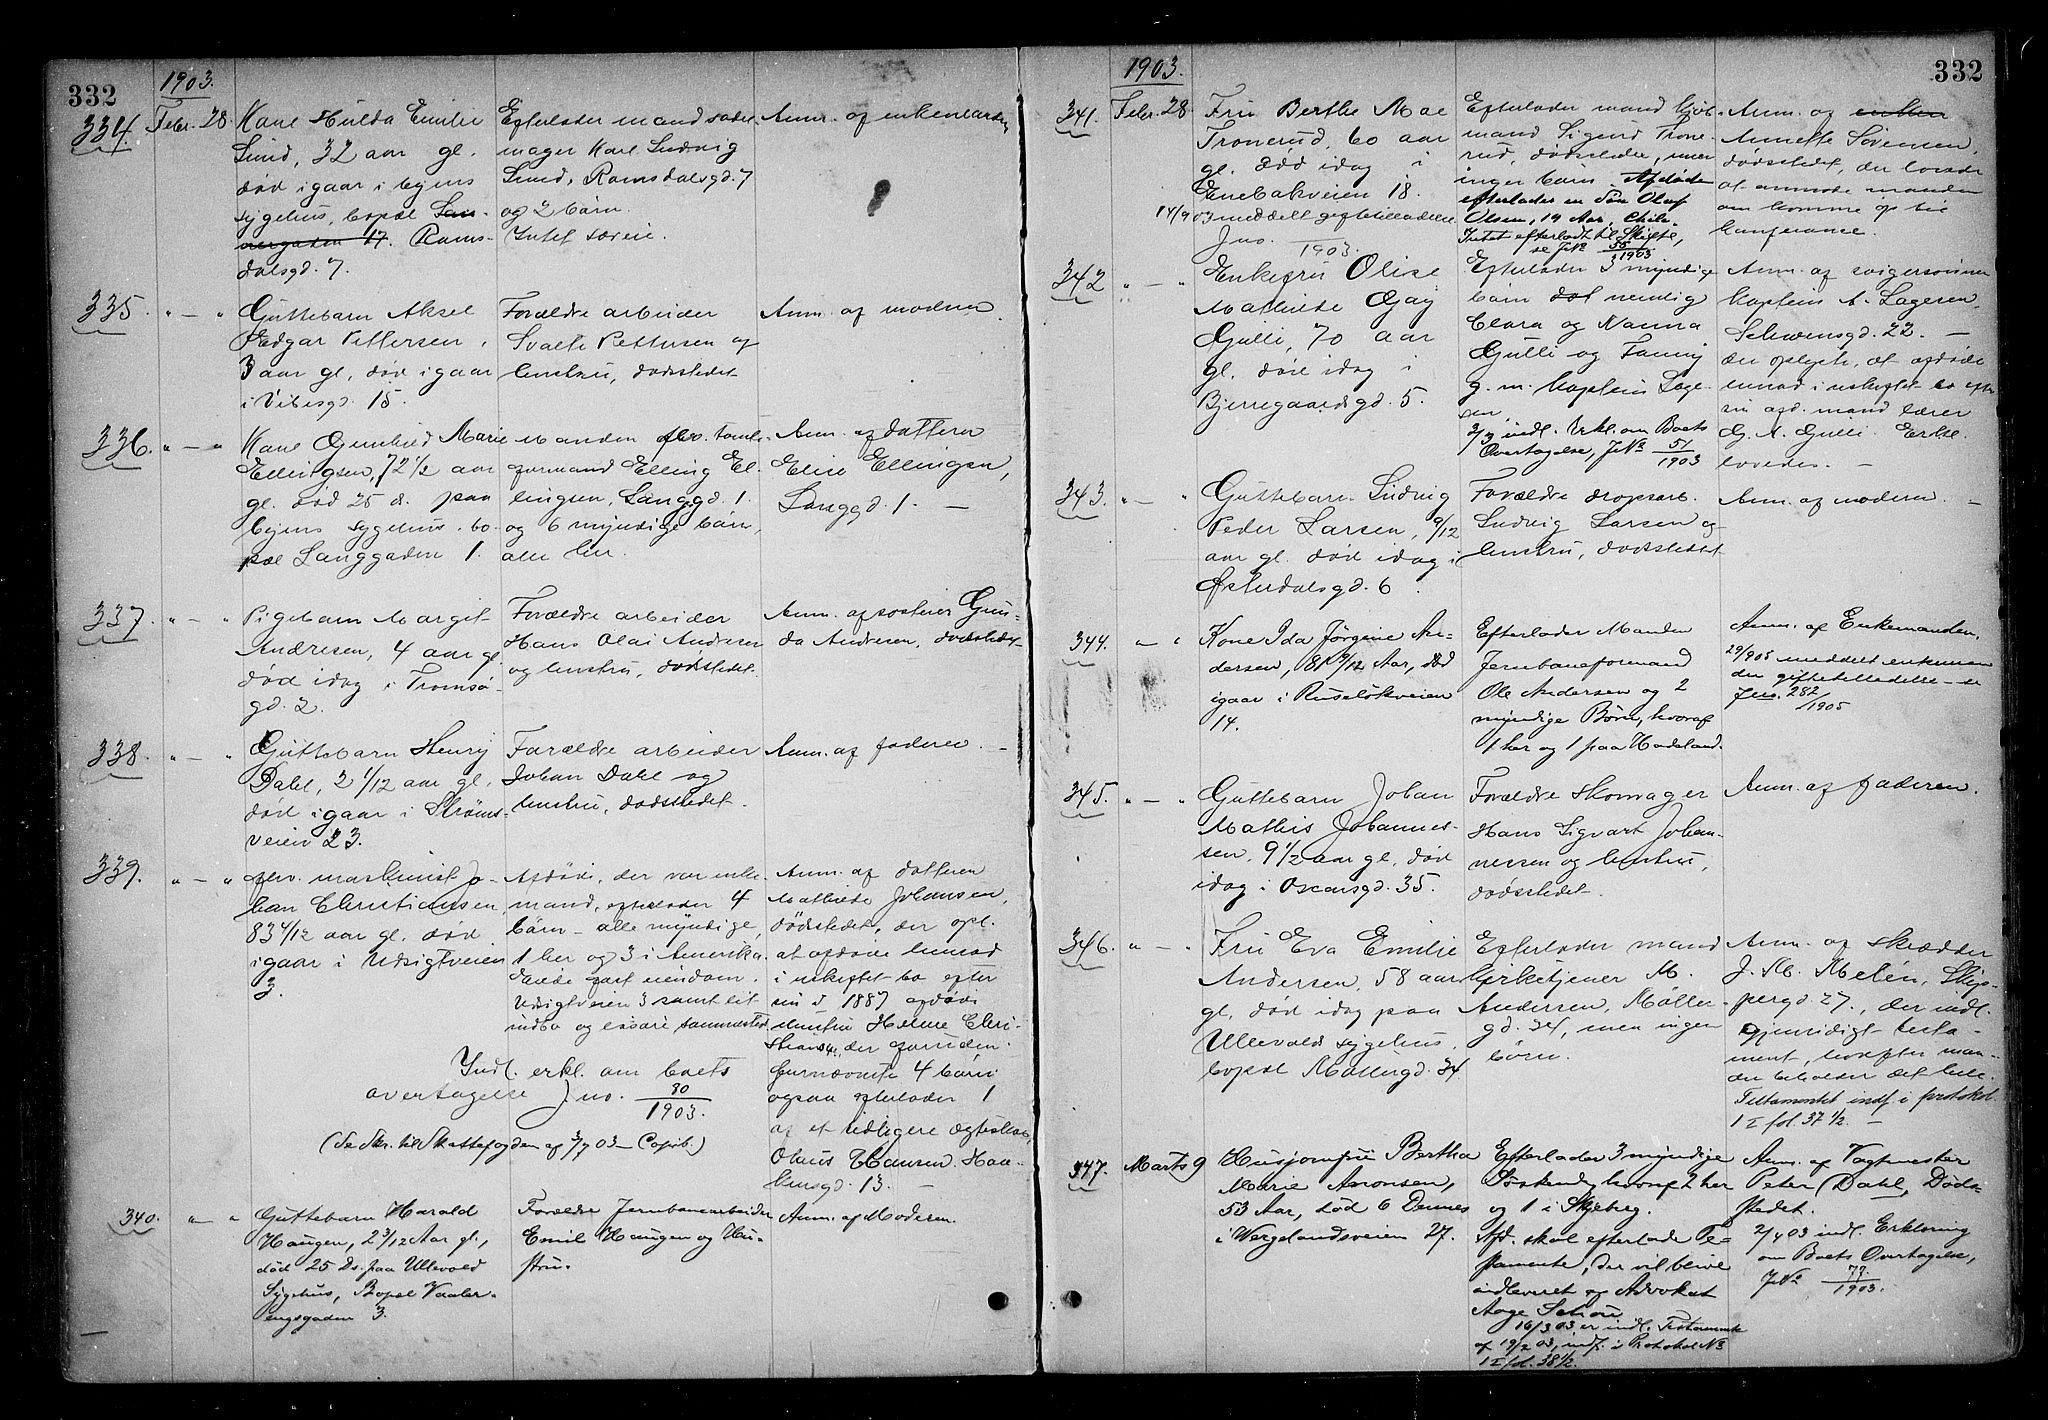 332
1903.
334. Febr. 28. Kone Hulda Emilie
Lund, 32 aar gl.
død igaar i byens
sygehus, bopæl
17. Rams-
dalsgd. 7.
Efterlader mand sadel-
mager Karl Ludvig
Lund, Ramsdalsgd. 7
og 2 børn.
Intet særeie.
Anm. af enkemanden
335. " — " Guttebarn Aksel
Edgar Pettersen,
3 aar gl., død igaar
i Vibesgd. 15.
Forældre arbeider
Pettersen og
hustru, dødsstedet
Anm. af moderen.
336. " — " Kone Gunhild Marie
Ellingsen, 72 1/2 aar
gl. død 25 ds. paa
byens sygehus, bo-
pæl Langgaden 1.
Manden forv. tomte-
formand Elling El-
lingsen, Langgd. 1.
og 6 myndige børn,
alle her.
Anm. af datteren
Elise Ellingsen,
Langgd. 1. —
337. " — " Pigebarn Margit
Andresen, 4 aar gl.
død idag i Tromsø-
gd. 2.
Forældre arbeider
Hans Olai Andresen
og hustru, dødsstedet.
Anm. af søsteren Gun-
da Andresen, dødsstedet
338. " — " Guttebarn Henry
Dahl, 2 1/12 aar gl.
død igaar i Strøms-
veien 23.
Forældre arbeider
Johan Dahl og
hustru, dødsstedet.
Anm. af faderen. —
339. " — " forv. maskinist Jo-
han Christiansen,
83 4/12 aar gl. død
igaar i Udsigtveien
3.
Afdøde, der var enke-
mand, efterlader 4
børn – alle myndige,
1 her og 3 i Amerika.
Havde fast eiendom,
Udsigtveien 3 samt lit
indbo og løsøre sammesteds
Indl. erkl. om boets
overtagelse Jno. 80/1903.
(Se Skr. til Skattefogden af 3/7 03 – Copib.)
Anm. af datteren
Mathilde Johansen,
dødsstedet, der opl.
at afdøde hensad
i uskiftet bo efter
sin i 1887 afdøde
hustru Helene Chri-
stians, der foruden
fornævnte 4 børn
ogsaa efterlader 1
af et tidligere ægteskab,
Olaus Hansen. Han-
gd. 13. —
340. " — " Guttebarn Harald
Haugen, 2 3/12 Aar gl.,
død 25 Ds. paa Ullevold
Sygehus, Bopæl Vaaler-
engsgaden 3.
Forældre Jernbanearbeider
Emil Haugen og Hu-
stru.
Anm. af Moderen.
332
1903.
341. Febr. 28. Fru Berthe Mae
Tronerud, 60 aar
gl. død idag i
Enebakveien 18.
14/9 03 meddelt giftetilladelse
Jno. /1903.
Efterlader mand Kjøb-
mand Sigurd Trone-
rud, dødsstedet, men
ingen børn. Afdøde
efterlader en Søn Olaf
Olsen, 19 Aar, Chile.
Intet efterladt til Skifte,
se JNo 55/1903
Anm. af
Annette Sørensen,
dødsstedet, der lovede
at anmode manden
om komme op til
konferance.
342 " — " Enkefru Olise
Mathilde Gjøy
Gulli, 70 aar
gl. død idag i
Bjerregaardsgd. 5.
Efterlader 3 myndige
børn nemlig
Clara og Nanna
Gulli og Fanny
g. m. kaptein Lage-
sen,
2/3 indl. Erkl. om Boets
Overtagelse, JNo 51/1903
Anm. af svigersønnen
Kaptein A. Lagesen,
Schwensgd. 22. —
der oplyste, at afdøde
hensad i uskiftet bo efter
sin afd. mand lærer
G. A. Gulli. Erkl.
lovedes. —
343. " — " Guttebarn Ludvig
Peder Larsen, 9/12
aar gl. død idag i
Østerdalsgd. 6.
Forældre
Ludvig Larsen og
hustru, dødsstedet
Anm. af moderen. —
344. " — " Kone Ida Jørgine An-
dersen, 81 9/12 Aar, død
igaar i Ruseløkveien
14.
Efterlader Manden
Jernbaneformand
Ole Andersen og 2
myndige Børn, hvoraf
1 her og 1 paa Hadeland.
Anm. af Enkemanden.
29/9 05 meddelt enkeman-
den giftetilladelse – se
Jno. 282/1905
345. " — " Guttebarn Johan
Mathis Johannes-
sen, 9 1/2 aar gl., død
idag i Oscarsgd. 35.
Forældre Skomager
Hans Sigvart Johan-
nessen og hustru,
dødsstedet.
Anm. af faderen.
346. " — " Fru Eva Emilie
Andersen, 58 aar
gl., død idag paa
Ullevold sygehus,
bopæl Møllergd. 34.
Efterlader mand
Kirketjener M.
Andersen, Møller-
gd. 34, men ingen
børn.
Anm. af skrædder
J. M. Melén, Skip-
pergd. 27, der indl.
gjensidigt testa-
ment, hvorefter man-
den beholder det hele.
Testamentet indf. i protokol
1 I fol. 37 1/2. —
347. Marts 9 Husjomfru Bertha
Marie Aronsen,
53 Aar, død 6 Dennes
i Wergelandsveien 27.
Efterlader 3 myndige
Søskende, hvoraf 2 her
og 1 i Skjeberg.
Afd. skal efterlade Te-
stamente, der vil blive
indleveret af Advokat
Aage Schou
16/3 03 er indl. Testamente
af 19/2 03, indf. i Protokol No
1 I fol. 38 1/2.
Anm. af Vagtmester
Peter Dahl, Døds-
stedet.
2/4 03 indl. Erklæring
om Boets Overtagelse,
JNo 77/1903.